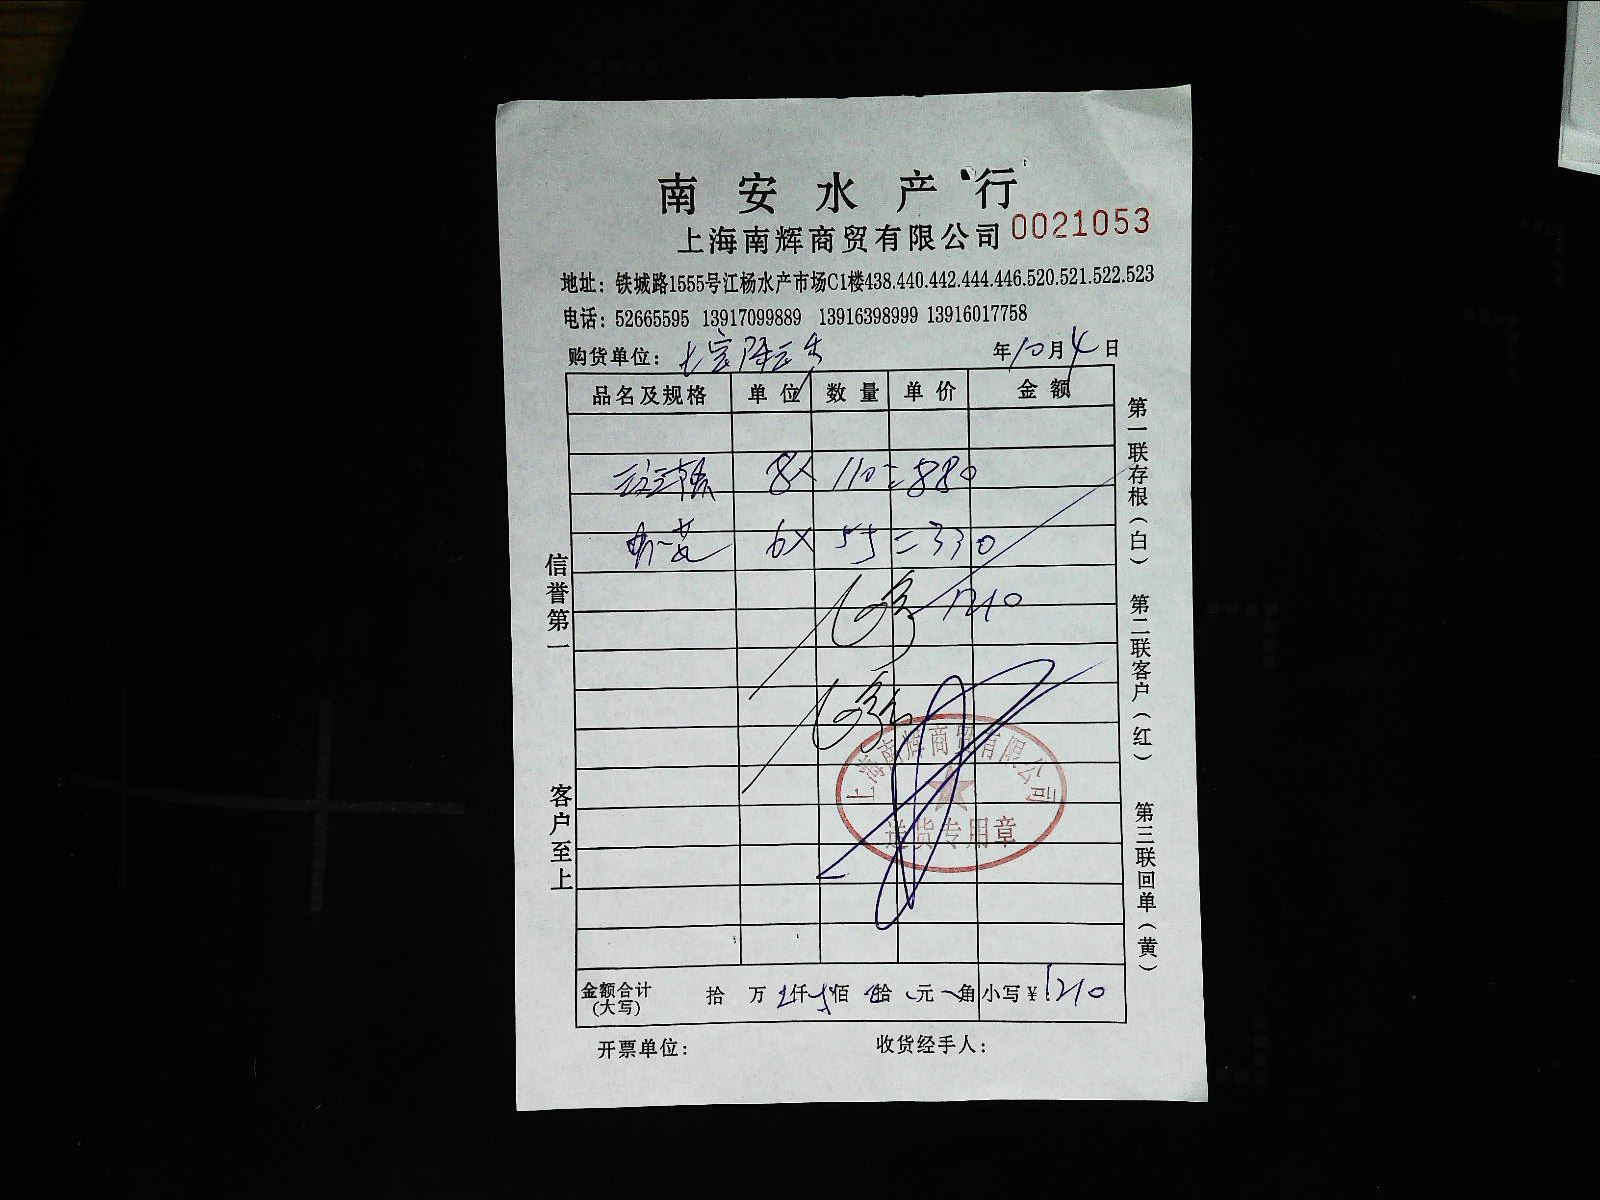 南安水产行
上海南辉商贸有限公司 0021053
地址：铁城路1555号江杨水产市场C1楼438.440.442.444.446.520.521.522.523
电话：52665595 13917099889 13916398999 13916017758
购货单位：
年10月4日
品名及规格 单位 数量 单价 金额
8× 110=880
6× 55=330
1210
上海南辉商贸有限公司
送货专用章
金额合计(大写) 拾 万 仟 佰 拾 元 角 小写¥：1210
开票单位： 收货经手人：
信誉第一
客户至上
第一联存根(白) 第二联客户(红) 第三联回单(黄)